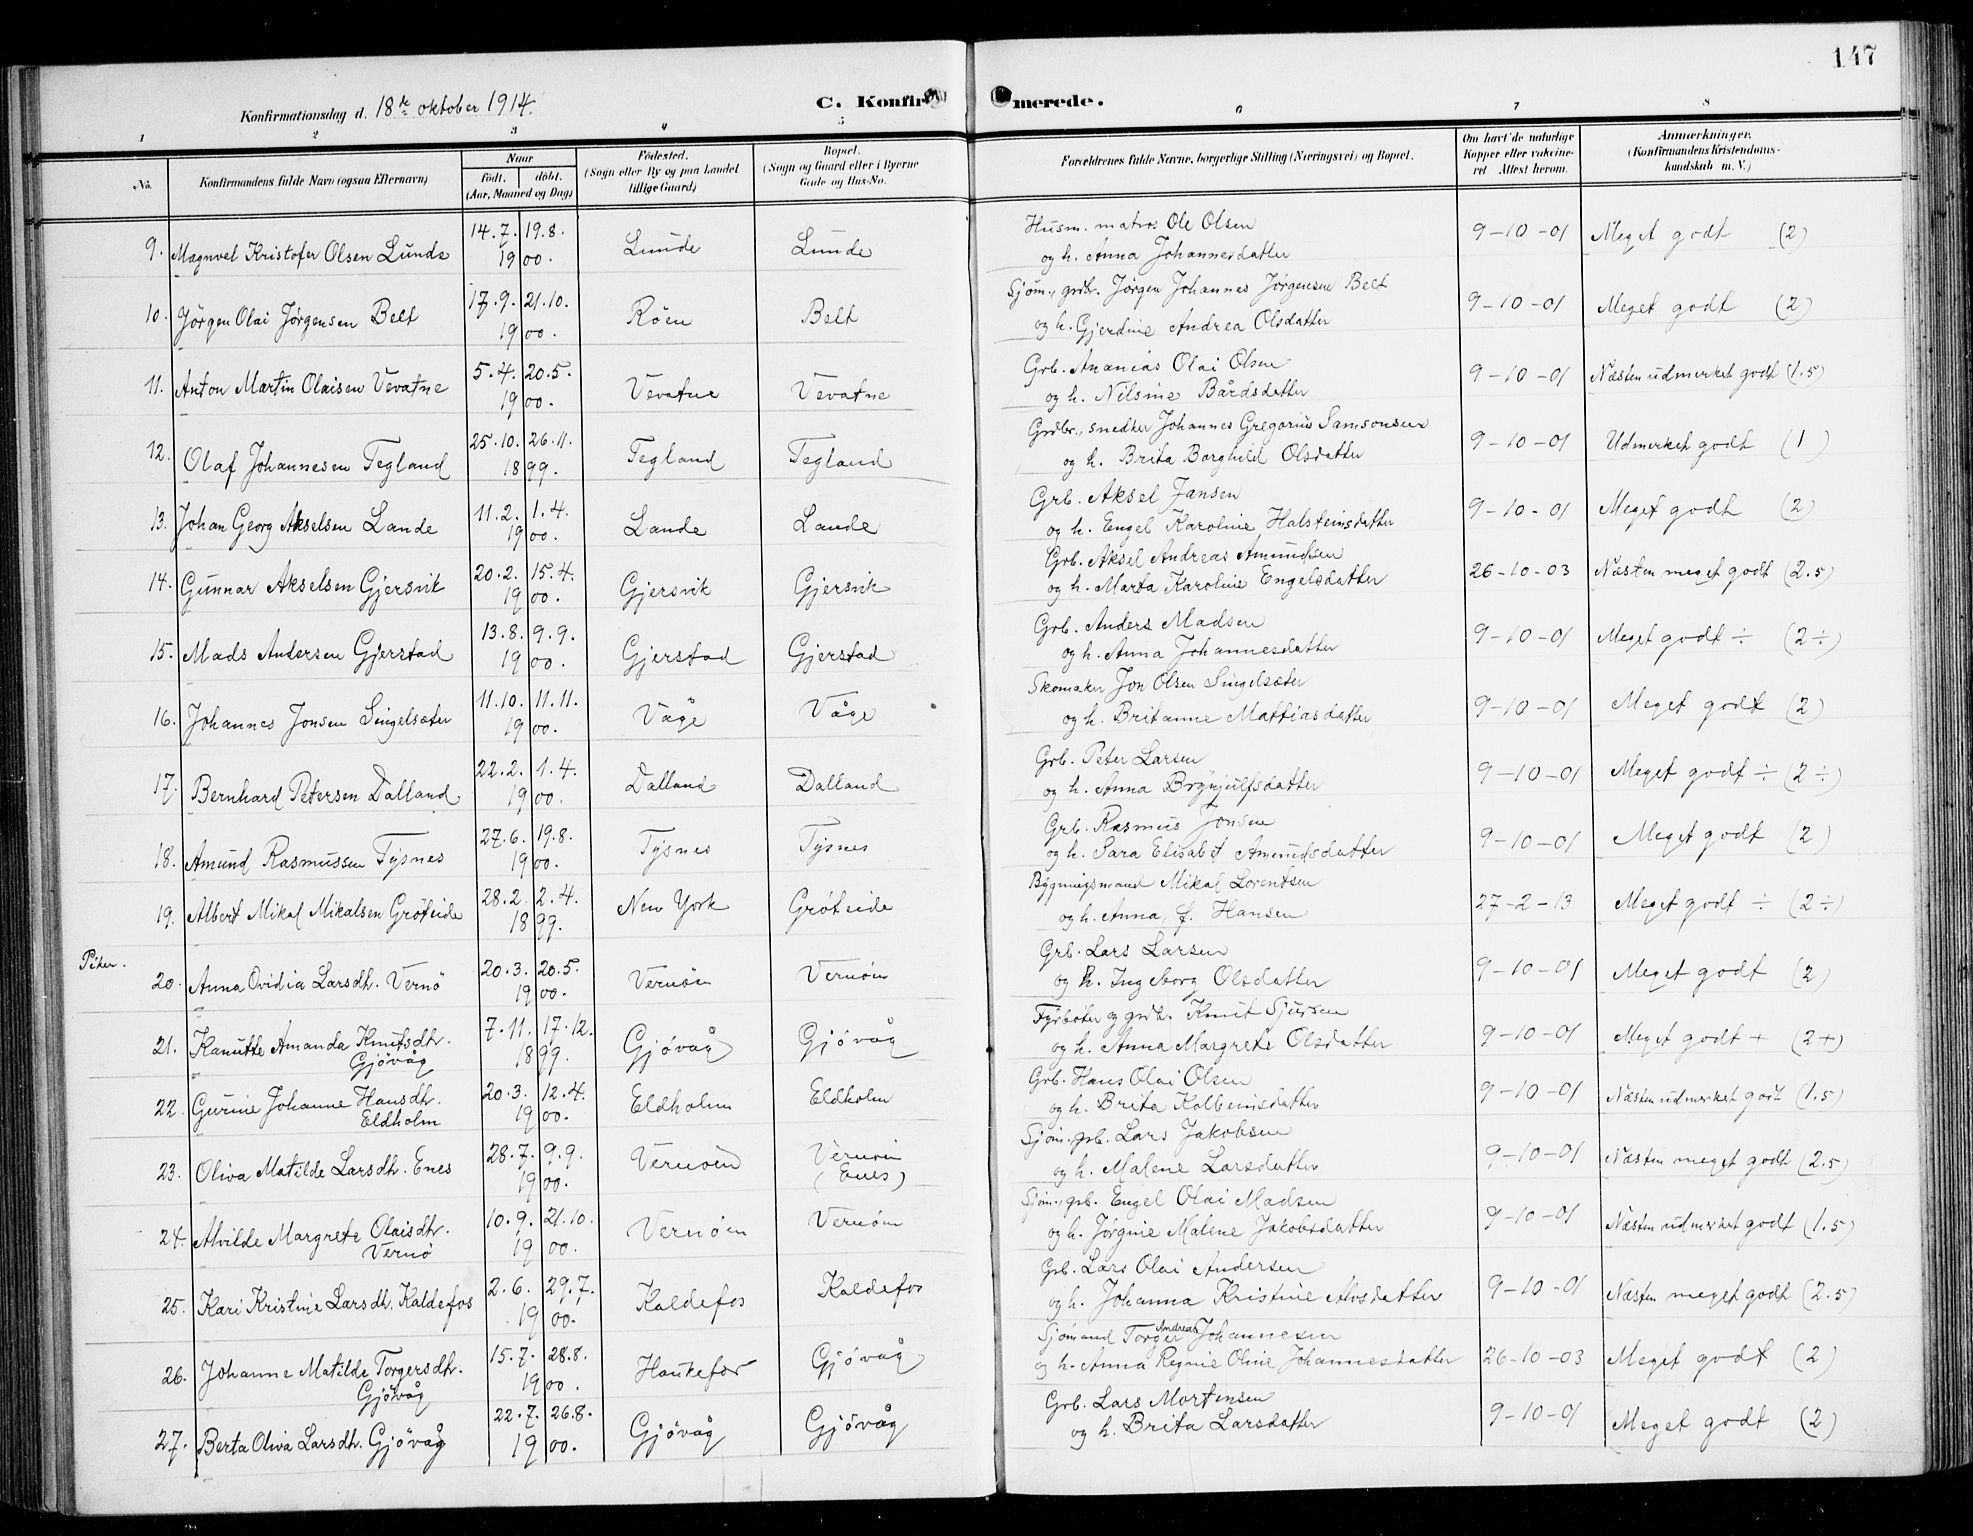 147
Konfirmationsdag d. 18de oktober 1914.
C. Konfirmerede.
1 2 3 4 5 6 7 8
No. Konfirmandens fulde Navn (ogsaa Efternavn) Naar født. døbt. (Aar, Maaned og Dag) Fødested. (Sogn eller By og paa Landet tillige Gaard) Bopæl. (Sogn og Gaard eller i Byerne Gade og Hus-No. Forældrenes fulde Navne, borgerlige Stilling (Næringsvei) og Bopæl. Om havt de naturlige Kopper eller vakcineret. Attest herom. Anmærkninger. (Konfirmandens Kristendomskundskab m. V.)
9. Magnvel Kristofer Olsen Lunde 14.7. 1900. 19.8. Lunde Lunde Husm. matros Ole Olsen
og h. Anna Johannesdatter 9-10-01 Meget godt (2)
10. Jörgen Olai Jørgensen Belt 17.9. 21.10. 1900. Röen Belt Sjöm., grdbr. Jørgen Johannes Jørgensen Belt
og h. Gjerdine Andrea Olsdatter 9-10-01 Meget godt (2)
11. Anton Martin Olaisen Vevatne 5.4. 20.5. 1900. Vevatne Vevatne Grb. Ananias Olai Olsen
og h. Nilsine Bårdsdatter 9-10-01 Næsten udmerket godt (1.5)
12. Olaf Johannesen Tegland 25.10. 26.11. 1899. Tegland Tegland Grdbr., snedker Johannes Gregorius Samsonsen
og h. Brita Borghild Olsdatter 9-10-01 Udmerket godt (1)
13. Johan Georg Akselsen Lande 11.2. 1.4. 1900. Lande Lande Grb. Aksel Jansen
og h. Engel Karoline Halsteinsdatter 9-10-01 Meget godt (2)
14. Gunnar Akselsen Gjersvik 20.2. 15.4. 1900. Gjersvik Gjersvik Grb. Aksel Andreas Amundsen
og h. Marta Karoline Engelsdatter 26-10-03 Næsten meget godt (2.5)
15. Mads Andersen Gjerstad 13.8. 9.9. 1900. Gjerstad Gjerstad Grb. Anders Madsen
og h. Anna Johannesdatter 9-10-01 Meget godt ÷ (2÷)
16. Johannes Jonsen Singelsæter 11.10. 11.11. 1900. Våge Våge Skomaker Jon Olsen Singelsæter
og h. Britanne Mattiasdatter 9-10-01 Meget godt (2)
17. Bernhard Petersen Dalland 22.2. 1.4. 1900. Dalland Dalland Grb. Peter Larsen
og h. Anna Brynjulfsdatter 9-10-01 Meget godt ÷ (2÷)
18. Amund Rasmussen Tysnes 27.6. 19.8. 1900. Tysnes Tysnes Grb. Rasmus Jonsen
og h. Sara Elisabet Amundsdatter 9-10-01 Meget godt (2)
19. Albert Mikal Mikalsen Gröteide 28.2. 2.4. 1899. New York Gröteide Bygningsmand Mikal Lorentsen
og h. Anna, f. Hansen 27-2-13 Meget godt ÷ (2÷)
Piker.
20. Anna Ovidia Larsdtr. Vernö 20.3. 20.5. 1900. Vernöen Vernöen Grb. Lars Larsen
og h. Ingeborg Olsdatter 9-10-01 Meget godt (2)
21. Kanutte Amanda Knutsdtr. Gjövåg 7.11. 17.12. 1899. Gjövåg Gjövåg Fyrböter og grdbr. Knut Sjursen
og h. Anna Margrete Olsdatter 9-10-01 Meget godt + (2+)
22. Gurine Johanne Hansdtr. Eldholm 20.3. 12.4. 1900. Eldholm Eldholm Grb. Hans Olai Olsen
og h. Brita Kolbeinsdatter 9-10-01 Næsten udmerket godt (1.5)
23. Oliva Matilde Larsdtr. Enes 28.7. 9.9. 1900. Vernöen Vernöen (Enes) Sjöm., grb. Lars Jakobsen
og h. Malene Larsdatter 9-10-01 Næsten meget godt (2.5)
24. Alvilde Margrete Olaisdtr. Vernö 10.9. 21.10. 1900. Vernöen Vernöen Sjöm., grb. Engel Olai Madsen
og h. Jörgine Malene Jakobsdatter 9-10-01 Næsten udmerket godt (1.5)
25. Kari Kristine Larsdtr. Kaldefos 2.6. 29.7. 1900. Kaldefos Kaldefos Grb. Lars Olai Andersen
og h. Johanna Kristine Alvsdatter 9-10-01 Næsten meget godt (2.5)
26. Johanne Matilde Torgersdtr. Gjövåg 15.7. 28.8. 1900. Haukefor Gjövåg Sjömand Torger Andreas Johannesen
og h. Anna Regine Oline Johannesdatter 26-10-03 Meget godt (2)
27. Berta Oliva Larsdtr. Gjövåg 22.7. 26.8. 1900. Gjövåg Gjövåg Grb. Lars Mortensen
og h. Brita Larsdatter 9-10-01 Meget godt (2)